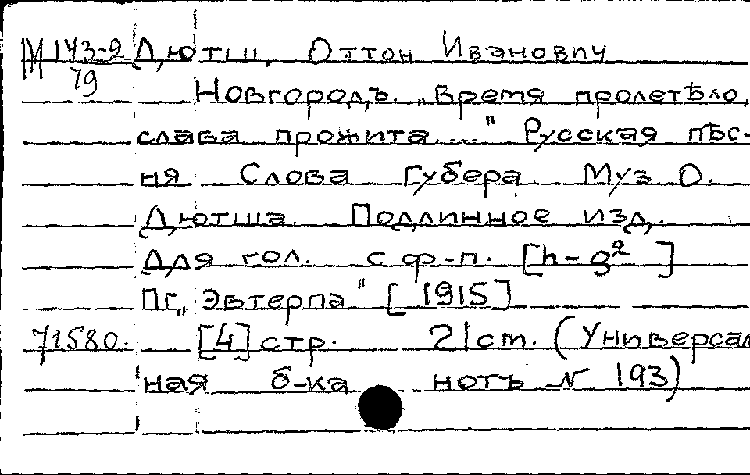 М 143-2 Дютш, Оттон Иванович
79
Новгородъ. „Время пролетѣло,
слава прожита..." Русская пѣс-
ня Слова Губера Муз О.
Дютша Подлинное изд.
для гол. с ф-п. [h-g²]
Пг„ Эвтерпа" [1915]
71580. [4] стр. 21 cm. (Универсал
ная б-ка нотъ № 193)